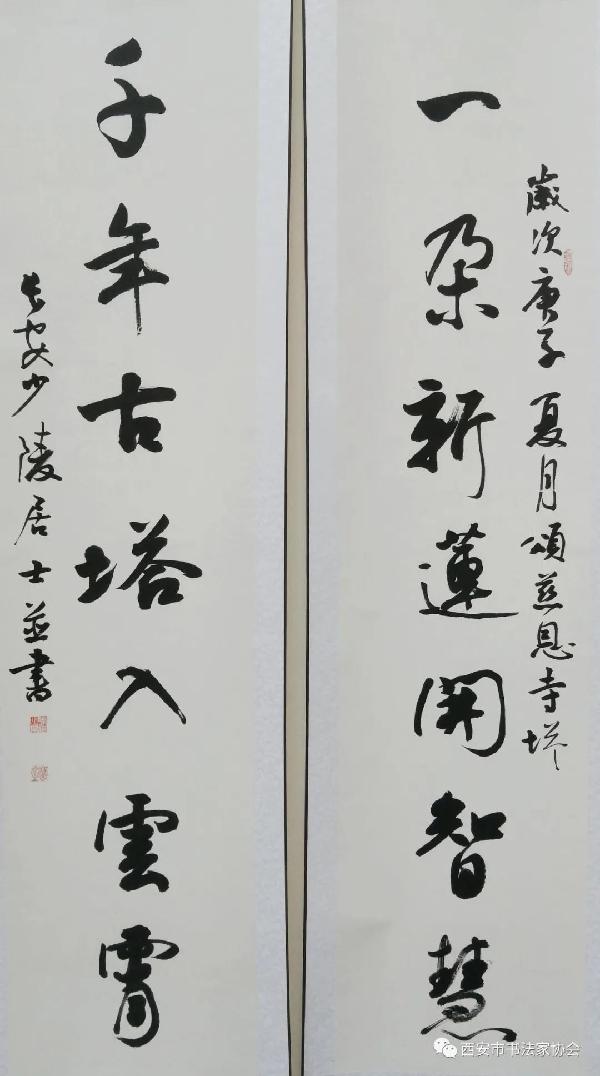 歲次庚子夏月頌慈恩寺塔
一朶新蓮開智慧
千年古塔入雲霄
長安少陵居士並書
西安市书法家协会